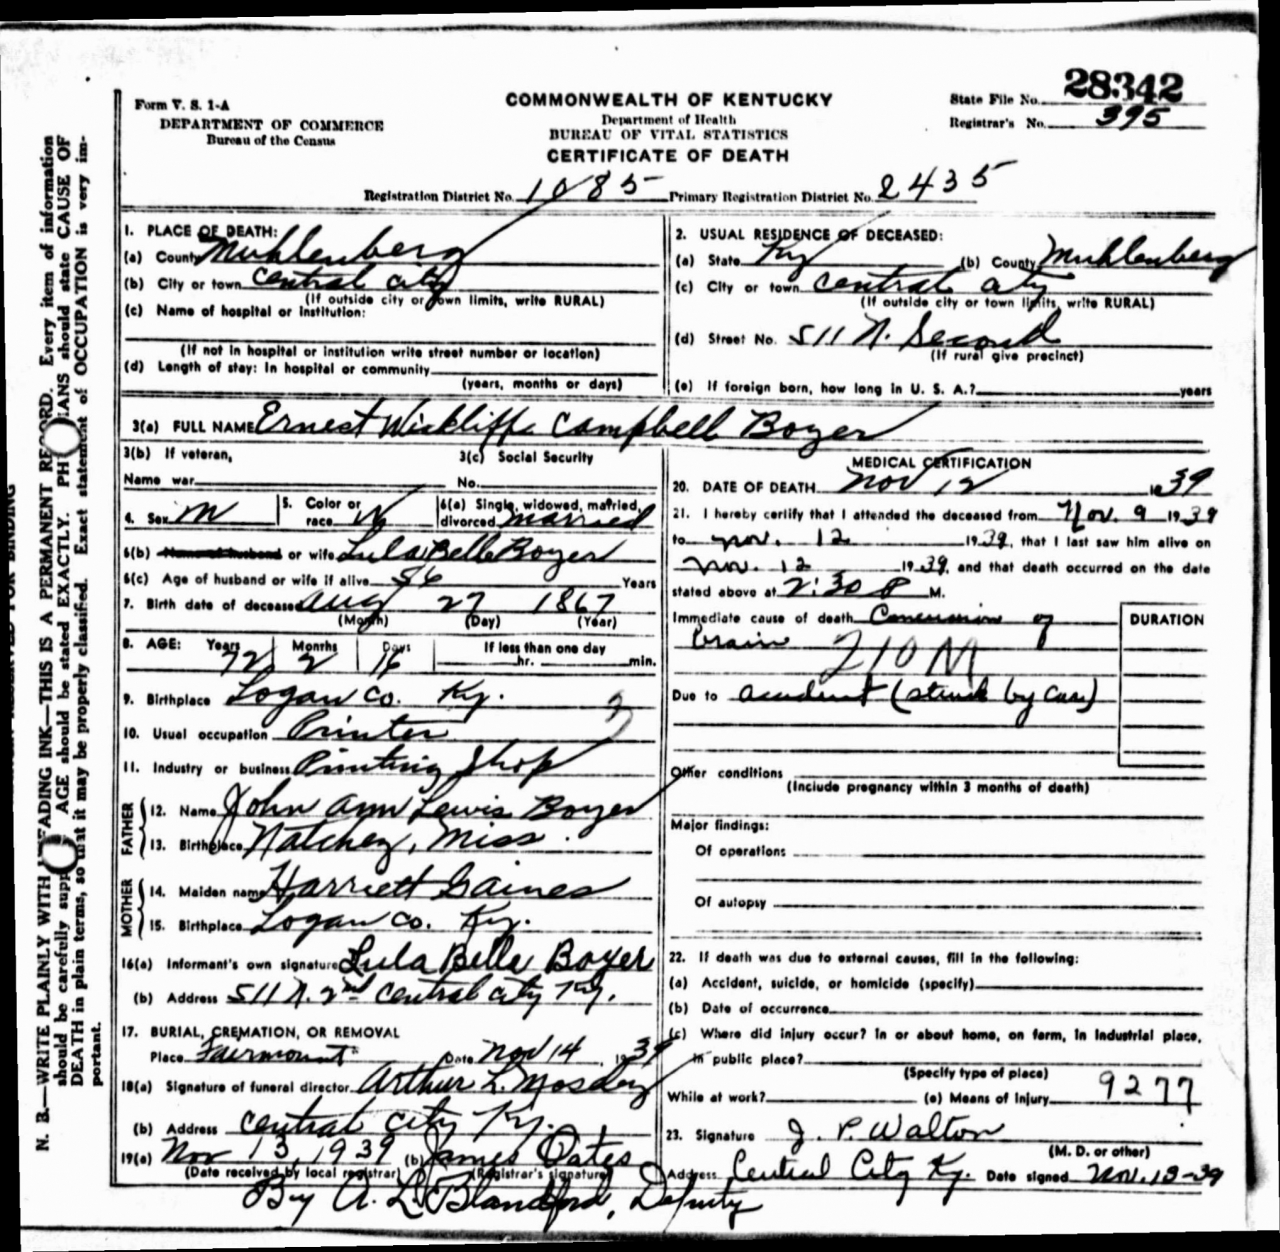 28342
Form V. S. 1-A
DEPARTMENT OF COMMERCE
Bureau of the Census
COMMONWEALTH OF KENTUCKY
Department of Health
BUREAU OF VITAL STATISTICS
CERTIFICATE OF DEATH
State File No.
Registrar's No. 395
Registration District No. 1085 Primary Registration District No. 2435
1. PLACE OF DEATH:
(a) County Muhlenberg
(b) City or town Central City
(If outside city or town limits, write RURAL)
(c) Name of hospital or institution:
(If not in hospital or institution write street number or location)
(d) Length of stay: In hospital or community
(years, months or days)
2. USUAL RESIDENCE OF DECEASED:
(a) State Ky (b) County Muhlenberg
(c) City or town Central City
(If outside city or town limits, write RURAL)
(d) Street No. 511 N. Second
(If rural give precinct)
(e) If foreign born, how long in U. S. A.? years
3(a) FULL NAME Ernest Wickliffe Campbell Boyer
3(b) If veteran,
Name war
3(c) Social Security
No.
4. Sex M
5. Color or
race W
6(a) Single, widowed, married,
divorced married
6(b) Name of husband or wife Lula Belle Boyer
6(c) Age of husband or wife if alive 56 Years
7. Birth date of deceased Aug 27 1867
(Month) (Day) (Year)
8. AGE: Years Months Days If less than one day
72 2 16 hr. min.
9. Birthplace Logan Co. Ky.
10. Usual occupation Printer
11. Industry or business Printing Shop
FATHER
12. Name John Ann Lewis Boyer
13. Birthplace Natchez, Miss.
MOTHER
14. Maiden name Harriett Gaines
15. Birthplace Logan Co. Ky.
16(a) Informant's own signature Lula Belle Boyer
(b) Address 511 N. 2nd Central City Ky.
17. BURIAL, CREMATION, OR REMOVAL
Place Fairmount Date Nov 14, 1939
18(a) Signature of funeral director Arthur L.
(b) Address Central City Ky.
19(a) Nov 13, 1939 (b) James Oates
(Date received by local registrar) (Registrar's signature)
By A. L. Blandford, Deputy
MEDICAL CERTIFICATION
20. DATE OF DEATH Nov 12 1939
21. I hereby certify that I attended the deceased from Nov. 9 1939
to Nov. 12 1939, that I last saw him alive on
Nov. 12 1939, and that death occurred on the date
stated above at 2:30 P M.
Immediate cause of death Concussion of
brain
210M
DURATION
Due to accident (struck by car)
Other conditions
(Include pregnancy within 3 months of death)
Major findings:
Of operations
Of autopsy
22. If death was due to external causes, fill in the following:
(a) Accident, suicide, or homicide (specify)
(b) Date of occurrence
(c) Where did injury occur? In or about home, on farm, in industrial place,
in public place?
(Specify type of place)
While at work? (e) Means of Injury 9277
23. Signature J. P. Walton
(M. D. or other)
Address Central City Ky. Date signed Nov. 13-39
N. B.—WRITE PLAINLY WITH ADING INK—THIS IS A PERMANENT RECORD. Every item of information
should be carefully supp AGE should be stated EXACTLY. PH IANS should state CAUSE OF
DEATH in plain terms, so that it may be properly classified. Exact statement of OCCUPATION is very im-
portant.